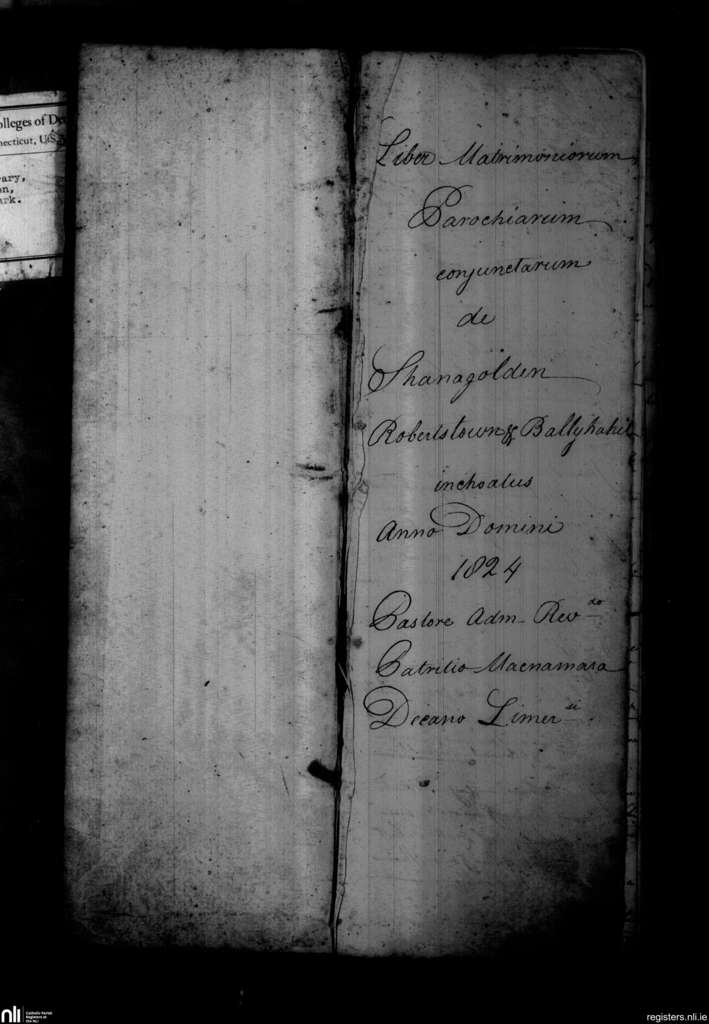 olleges of De
necticut, U.S.
rary,
on,
ark.
Liber Matrimoniorum
Parochiarum
conjunctarum
de
Shanagolden
Robertstown & Ballyhahil
inchoatus
Anno Domini
1824
Pastore Adm. Rev.do
Patritio Macnamara
Decano Limer.ii
nli
Catholic Parish
Registers at
the NLI
registers.nli.ie